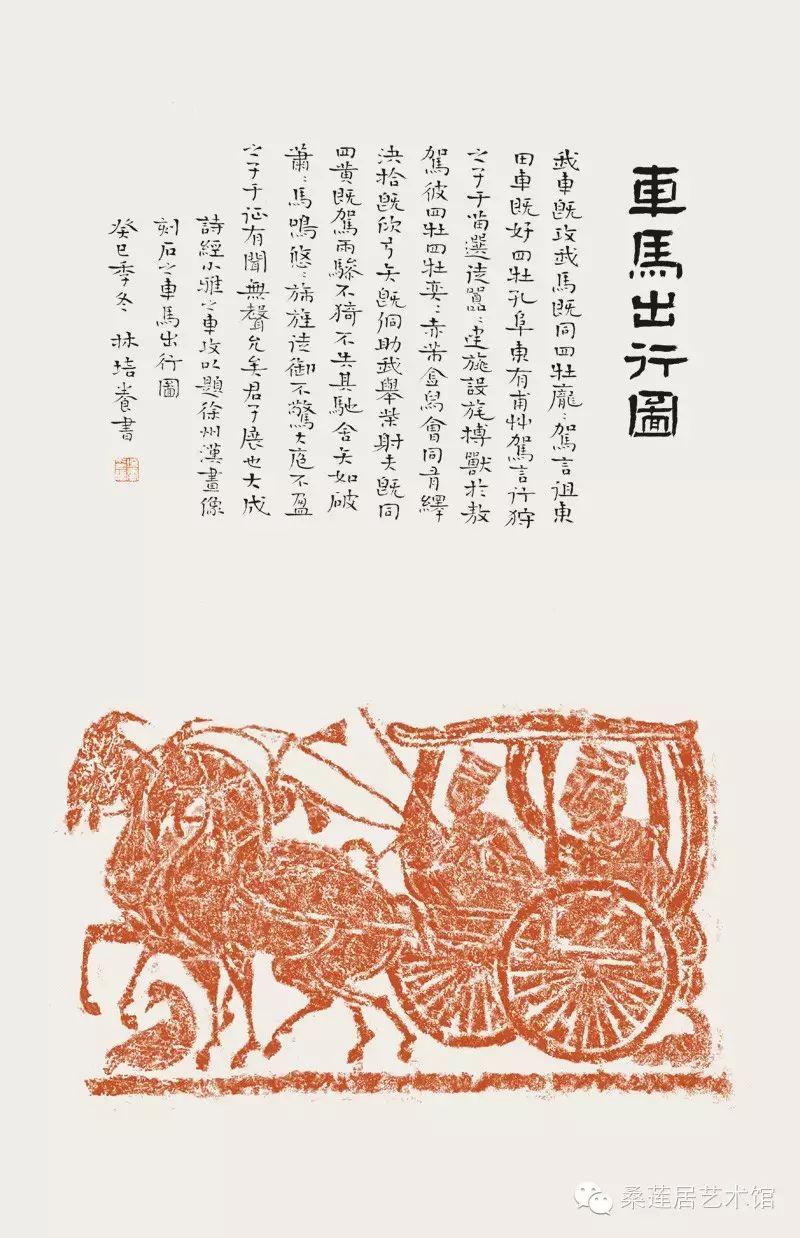 車馬出行圖
我車既攻我馬既同四牡龐〻駕言徂東
田車既好四牡孔阜東有甫艸駕言行狩
之子于苗選徒嚣〻建旐設旄搏獸於敖
駕彼四牡四牡奕〻赤芾金舄會同有繹
決拾既佽弓矢既調助我舉柴射夫既同
四黄既駕兩驂不猗不失其馳舍矢如破
蕭〻馬鳴悠〻旆旌徒御不驚大庖不盈
之子于征有聞無聲允矣君子展也大成
詩經小雅之車攻以題徐州漢畫像
刻石之車馬出行圖
癸巳季冬 林培養書
桑莲居艺术馆